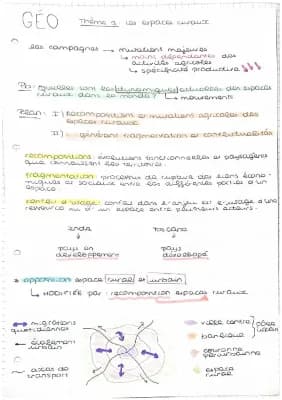 GÉO
Thème 3 : Les espaces ruraux
Les campagnes → mutations majeures
→ moins dépendantes des
activités agricoles
→ spécificité productive ↓↓↓
Pb : Quelles sont les dynamiques actuelles des espaces
ruraux dans le monde ?
↳ mouvements
Plan : I) Recompositions et mutations agricoles des
espaces ruraux
II) générant fragmentation et conflictualités
recompositions : évolutions fonctionnelles et paysagères
que connaissent les territoires.
fragmentation : processus de rupture des liens écono-
miques et sociaux entre les différentes parties d'un
espace
conflit d'usage : conflit dans l'enjeu est l'usage d'une
ressource ou d'un espace entre plusieurs acteurs.
Inde
Toscane
pays en
développement
pays
développé
opposition espace rural et urbain
↳ MODIFIÉE par : recomposition espaces ruraux
↔ migrations
quotidiennes
← étalement
urbain
axes de
transport
ville centre
banlieue
pôle
urbain
couronne
périurbaine
espace
rural